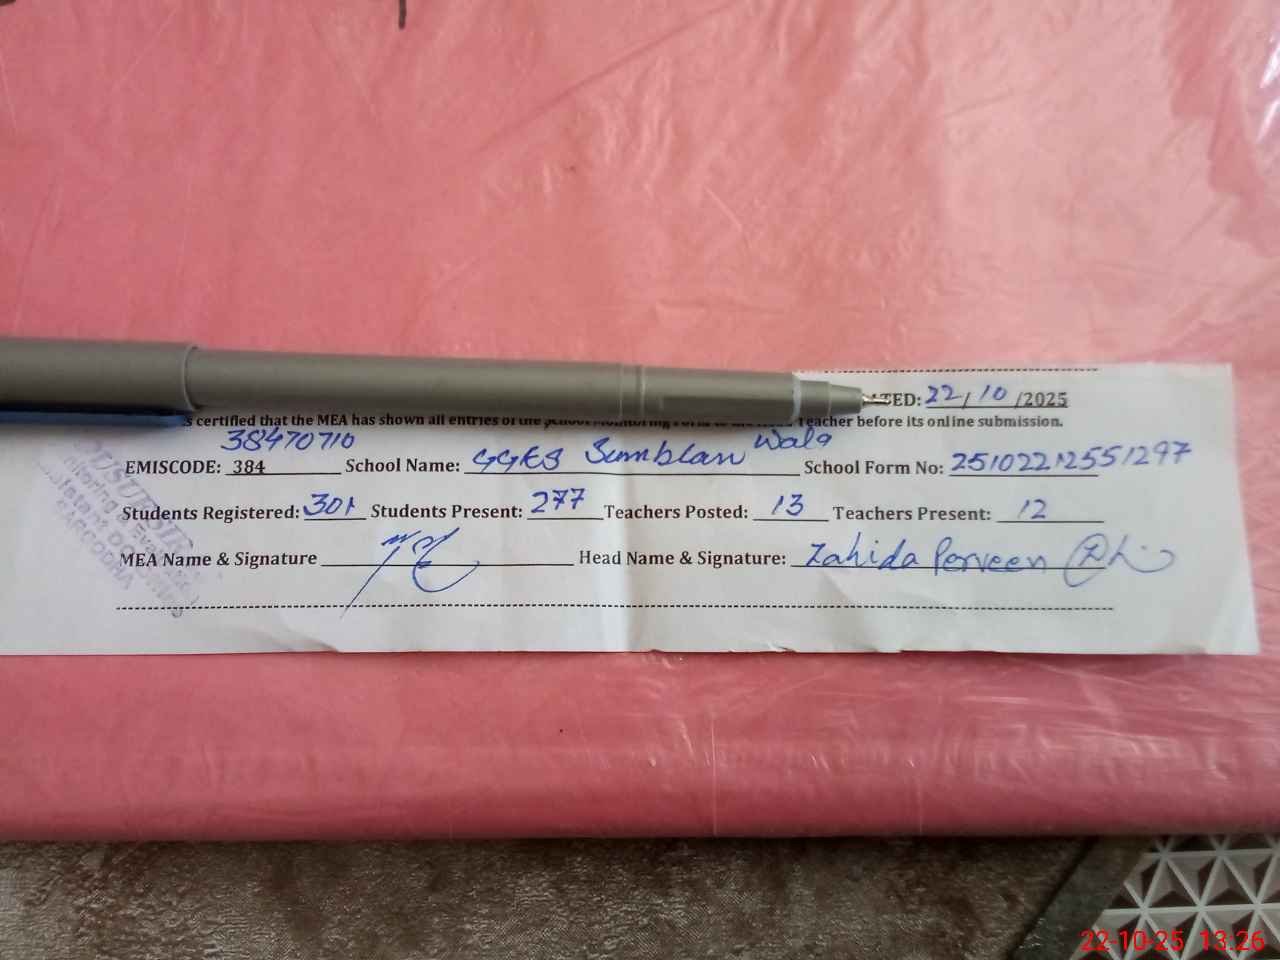 DATED: 22/10/2025
certified that the MEA has shown all entries of the School Monitoring Form to the Head Teacher before its online submission.
38470710
EMISCODE: 384 School Name: GGES Sumblan Wala School Form No: 25102212551297
Students Registered: 301 Students Present: 277 Teachers Posted: 13 Teachers Present: 12
MEA Name & Signature Head Name & Signature: Zahida Perveen
SARGODHA
22-10-25 13.26